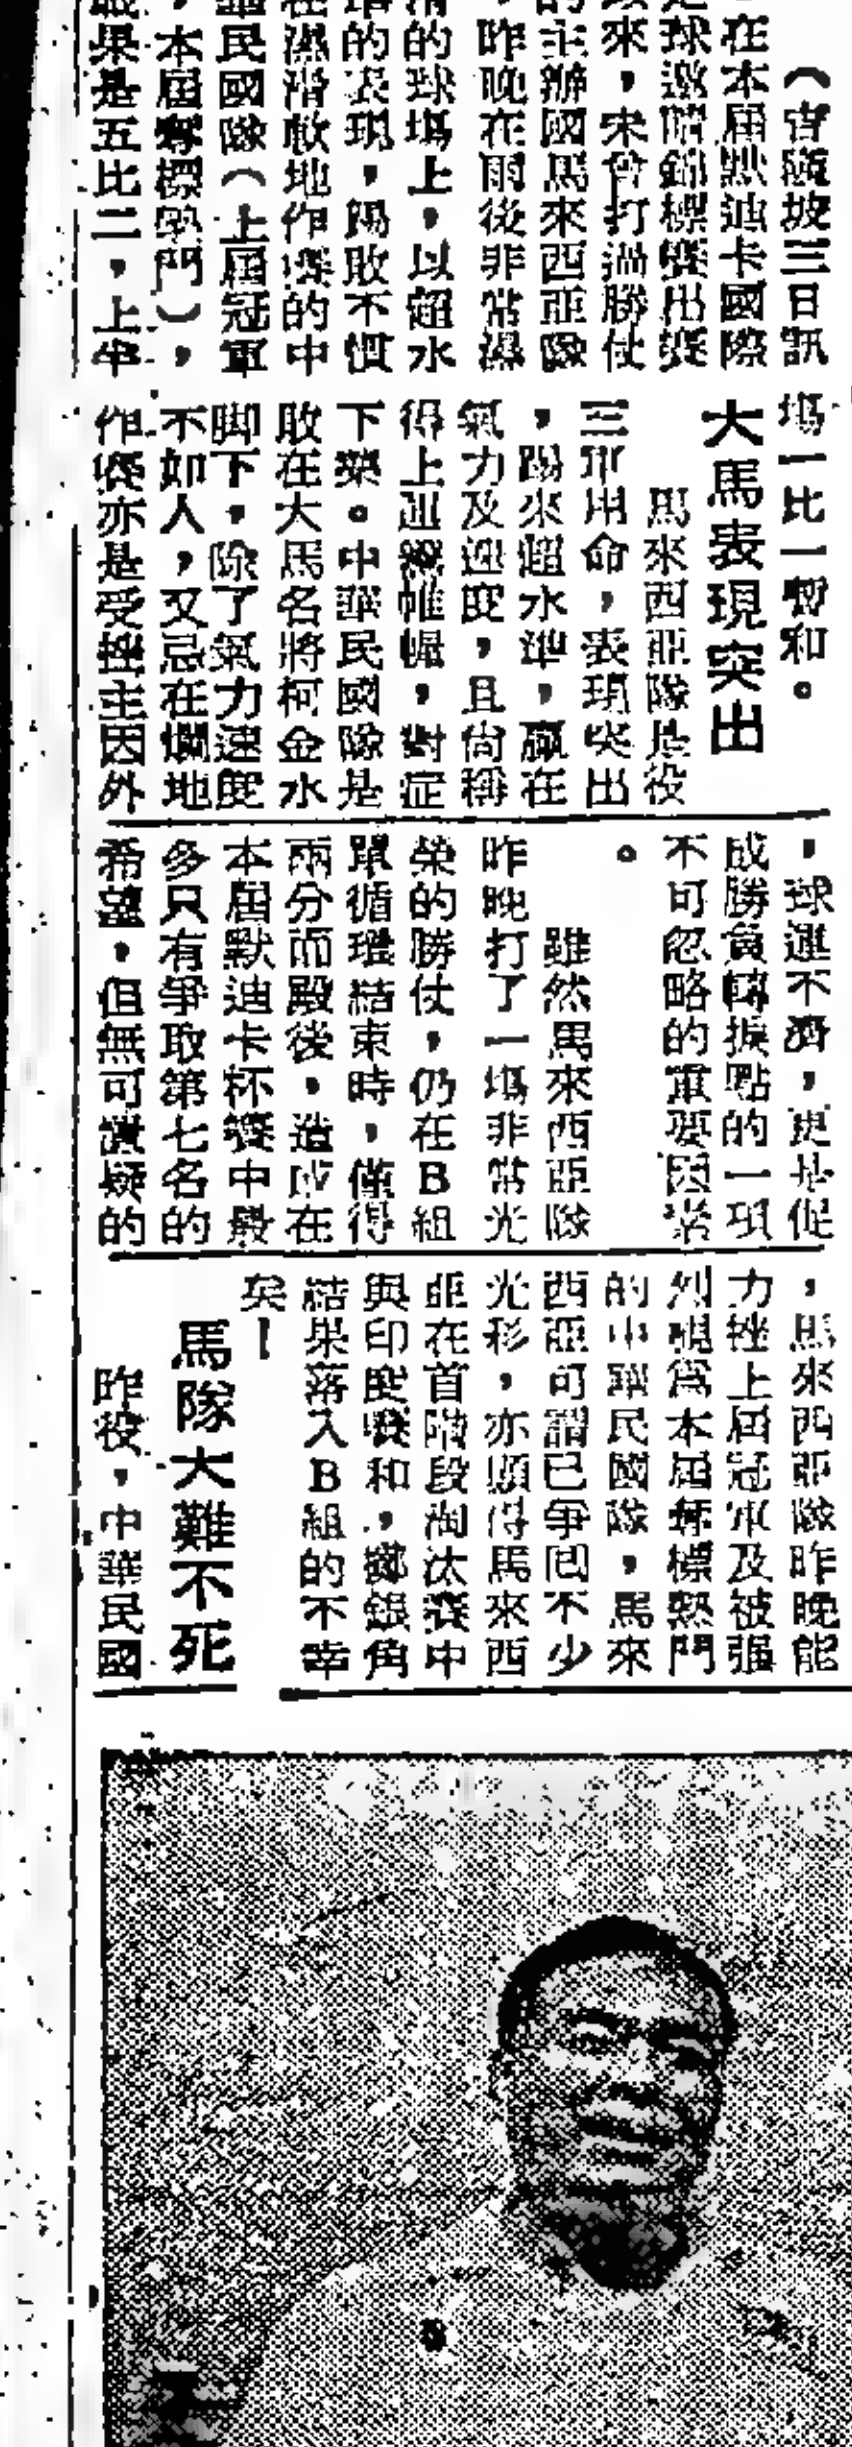 （吉隆坡三日訊
，在本屆默迪卡國際
足球邀請錦標賽出賽
以來，未曾打過勝仗
的主辦國馬來西亞隊
，昨晚在雨後非常濕
滑的球場上，以超水
準的表現，踢敗不慣
在濕滑軟地作賽的中
華民國隊（上屆冠軍
，本屆奪標熱門），
結果是五比二，上半
場一比一暫和。
大馬表現突出
馬來西亞隊是役
三軍用命，表現突出
，踢來超水準，贏在
氣力及速度，且尚稱
得上運籌帷幄，對症
下藥。中華民國隊是
敗在大馬名將柯金水
脚下，除了氣力速度
不如人，又忌在爛地
作賽亦是受挫主因外
，球運不濟，更是促
成勝負轉捩點的一項
不可忽略的重要因素
。
雖然馬來西亞隊
昨晚打了一場非常光
榮的勝仗，仍在B組
單循環結束時，僅得
兩分而殿後，造成在
本屆默迪卡杯賽中最
多只有爭取第七名的
希望，但無可置疑的
，馬來西亞隊昨晚能
力挫上屆冠軍及被强
烈視為本屆奪標熱門
的中華民國隊，馬來
西亞可謂已爭回不少
光彩，亦顯得馬來西
亞在首階段淘汰賽中
與印度賽和，擲銀角
結果落入B組的不幸
矣！
馬隊大難不死
昨役，中華民國